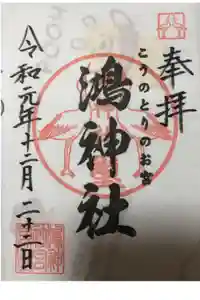 奉拝
こうのとりのお宮
鴻神社
令和元年十二月二十二日